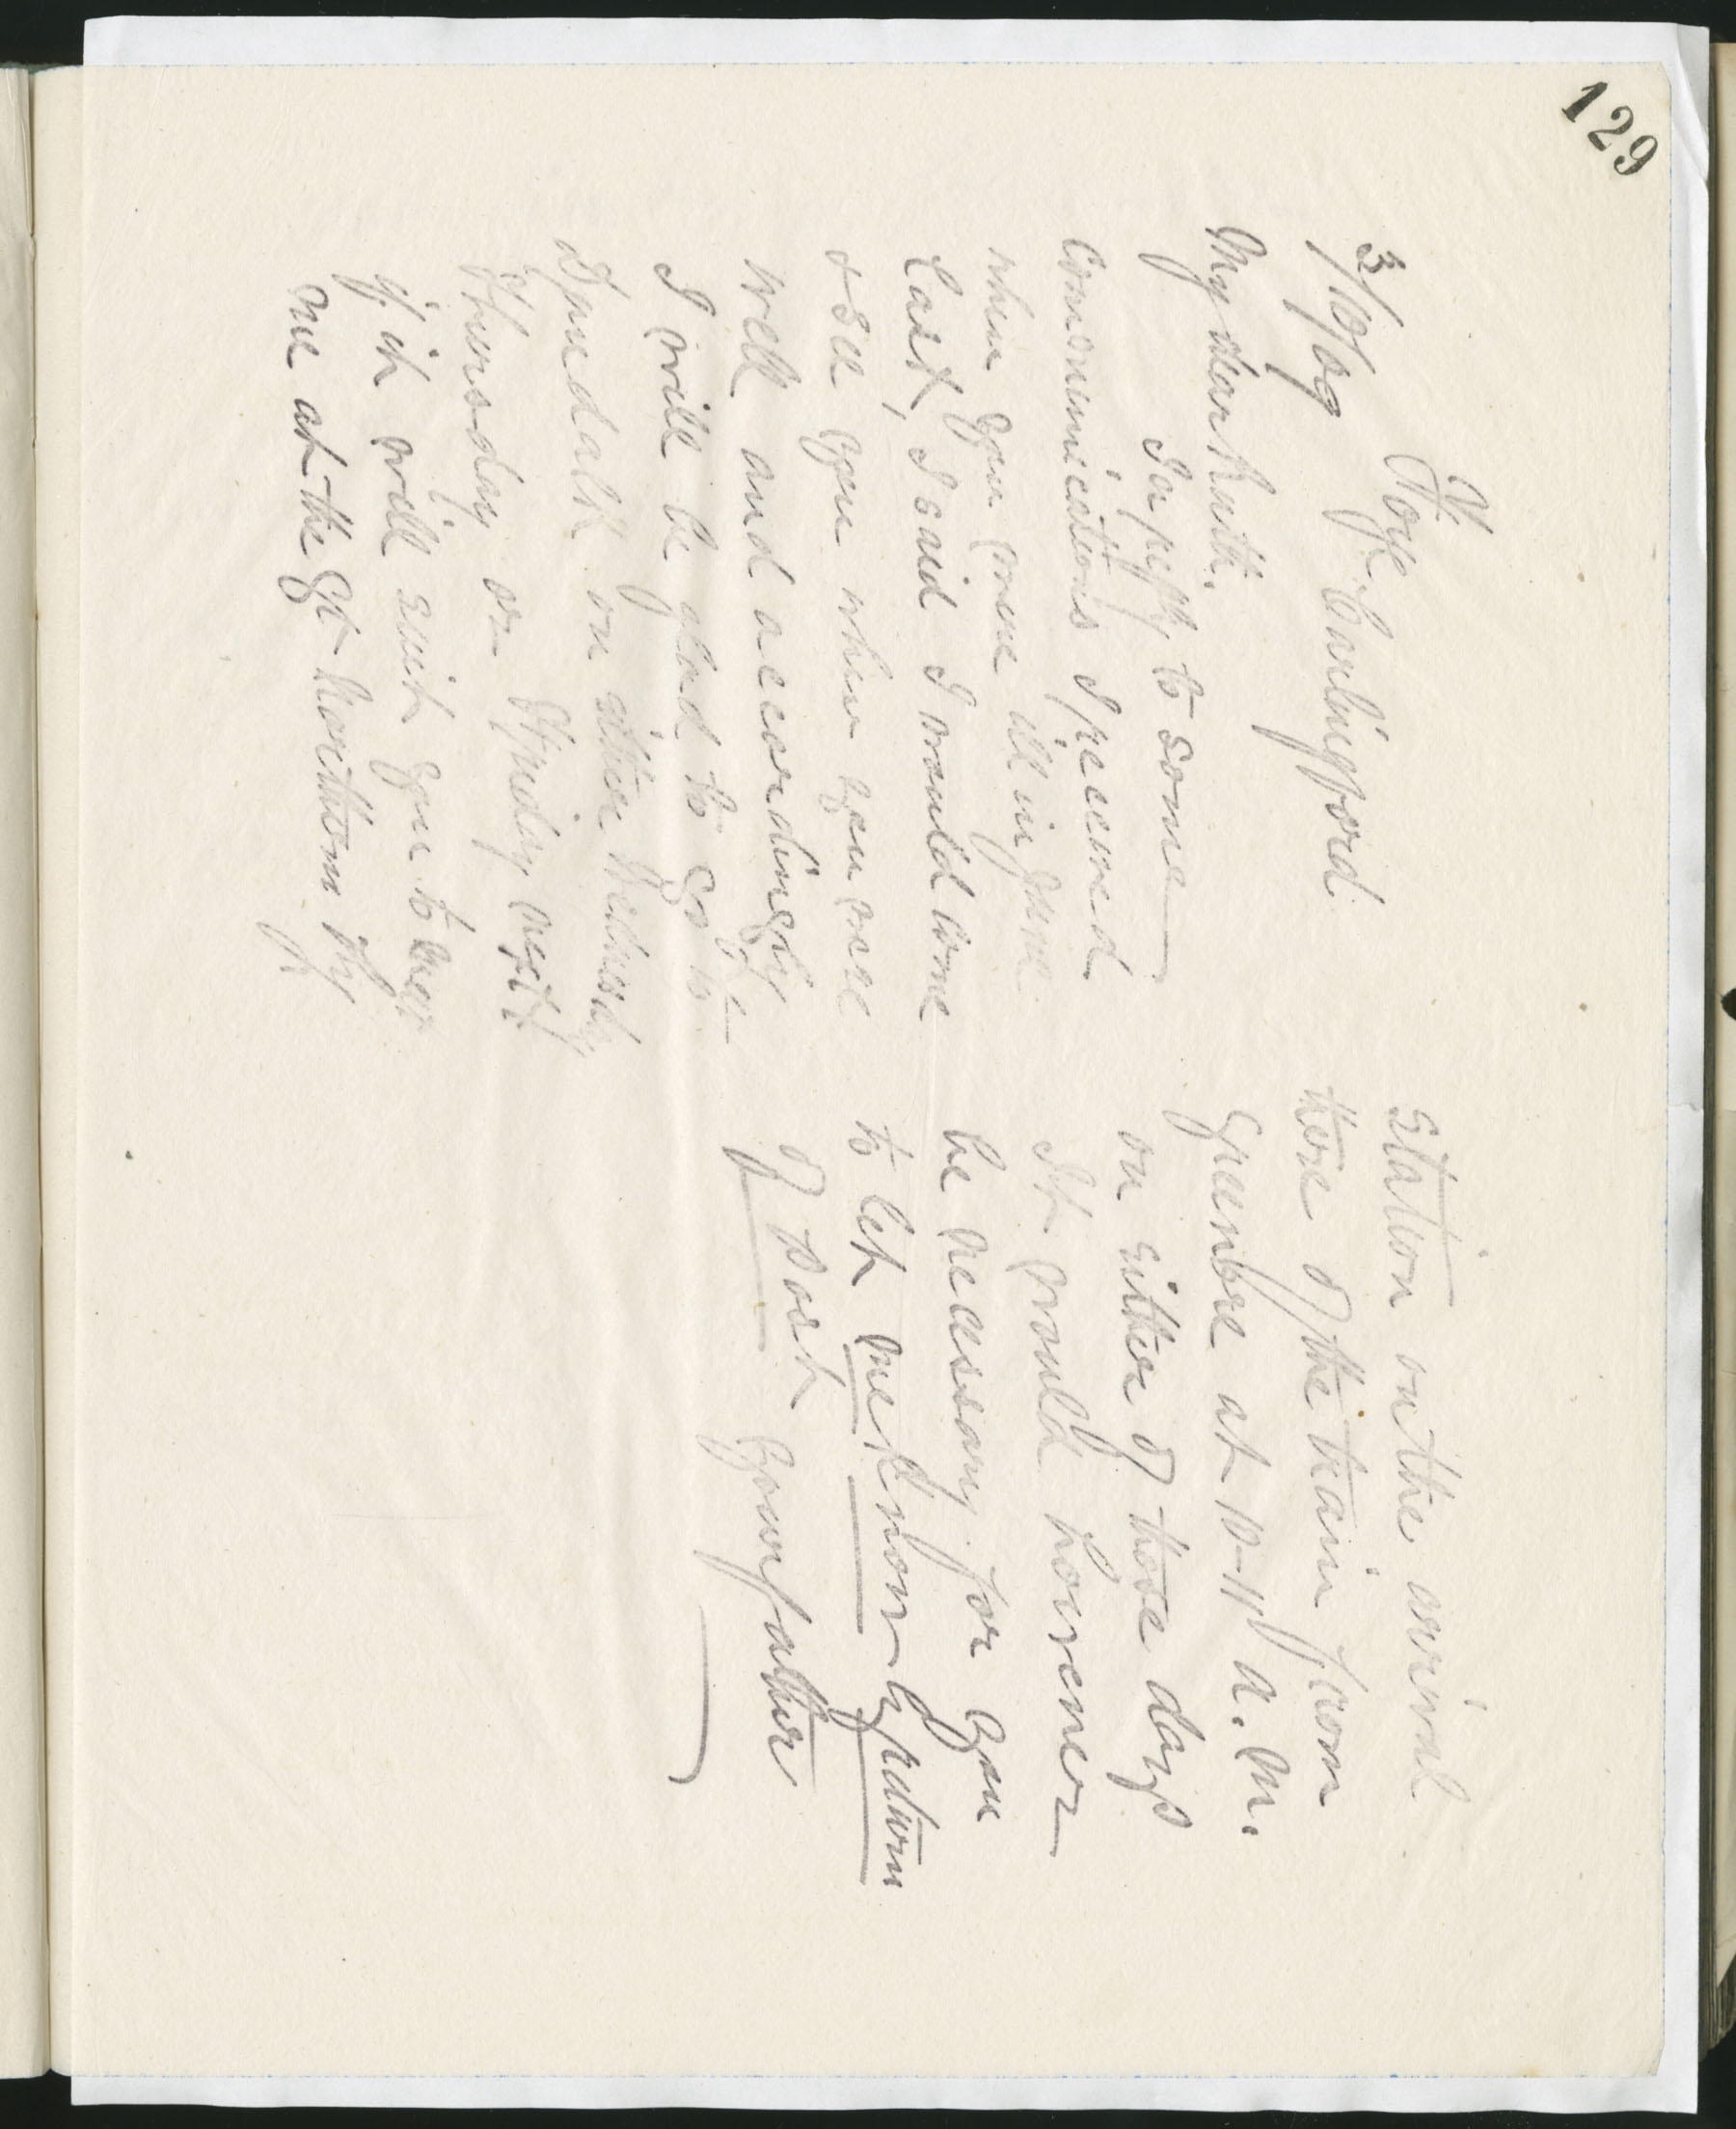 129
Hoye. Carlingford.
3/10/09
My dear Ruth.
In reply to some
communications I received
when you were ill in June
last, I said I would come
& see you when you were
well and accordingly
I will be glad to go to
Dundalk on either Wednesday
Thursday or Friday next
if it will suit you to meet
me at the Gt Northern Ry
station on the arrival
there of the train from
Greenore at 10-11 a.m.
on either of those days
It would however
be necessary for you
to let me know by return
of post Your father